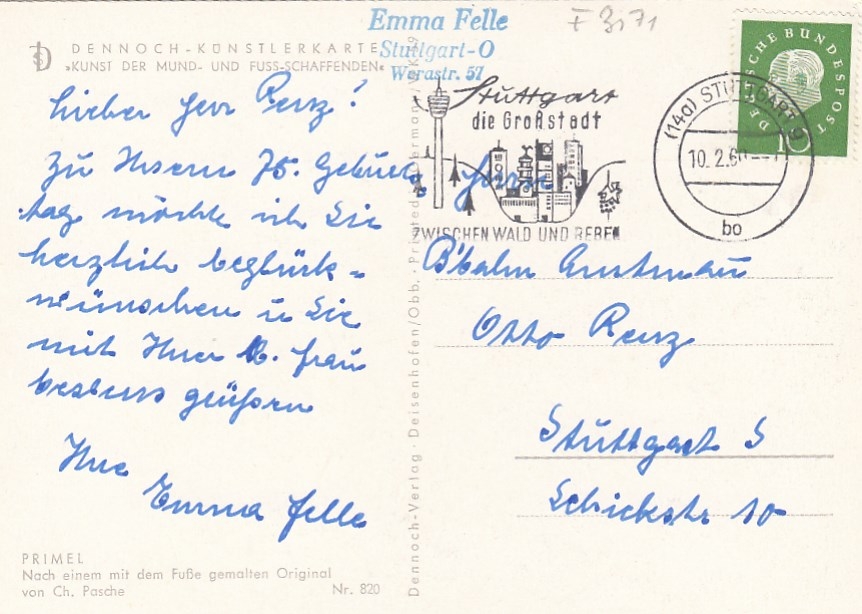 Emma Felle
Stuttgart-O
Werastr. 57
DENNOCH-KÜNSTLERKARTE
»KUNST DER MUND- UND FUSS-SCHAFFENDEN«
Lieber Herr Renz!
Zu Ihrem 75. Geburts-
tag möchte ich Sie
herzlich beglück-
wünschen u Sie
mit Ihrer lb. Frau
bestens grüßen
Ihre
Emma Felle
PRIMEL
Nach einem mit dem Fuße gemalten Original
von Ch. Pasche
Nr. 820
Dennoch-Verlag · Deisenhofen/Obb. · Printed
Stuttgart
die Großstadt
ZWISCHEN WALD UND REBEN
(14a) STUTTGART 9
10.2.60
bo
DEUTSCHE BUNDESPOST
10
Herrn
B'bahn Amtmann
Otto Renz
Stuttgart S
Schickstr 10